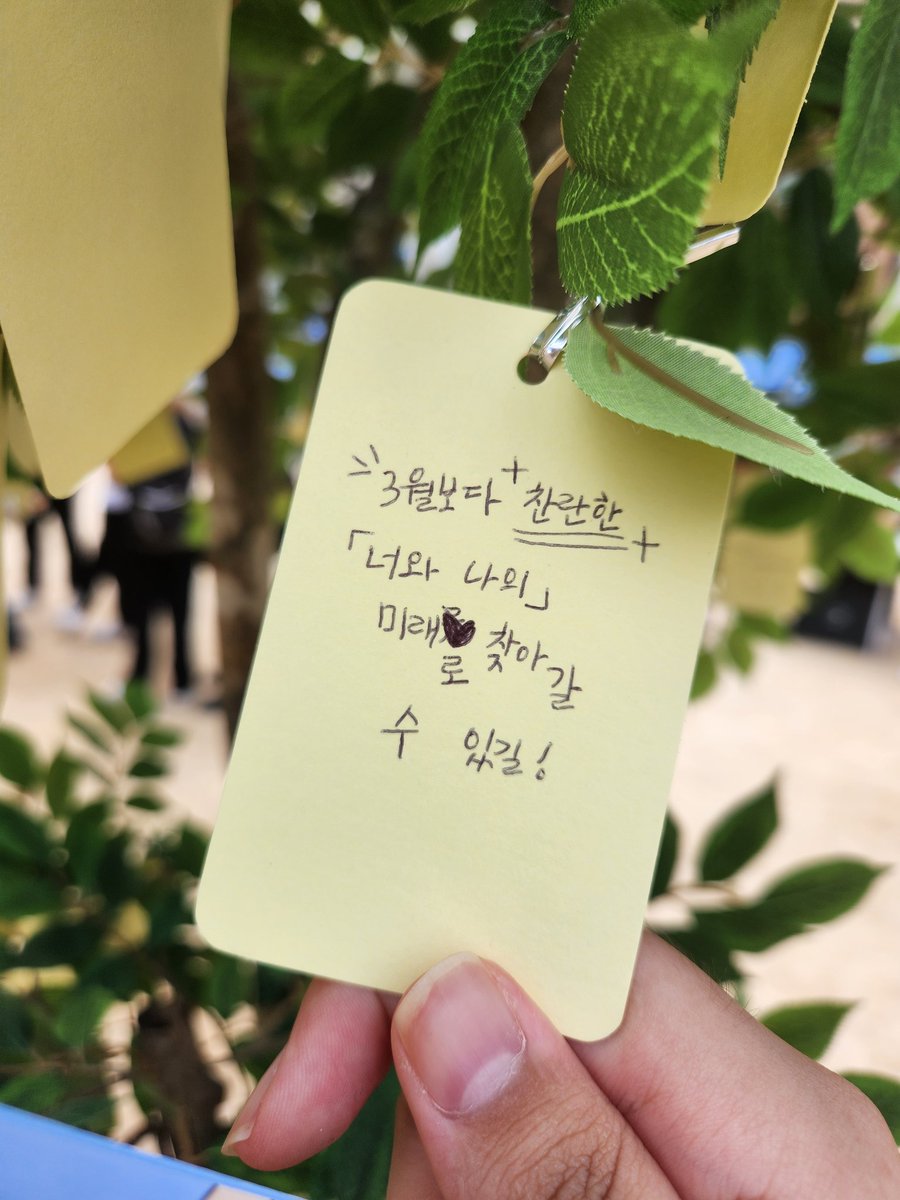 3월보다 찬란한
「너와 나의」
미래로 찾아갈
수 있길!